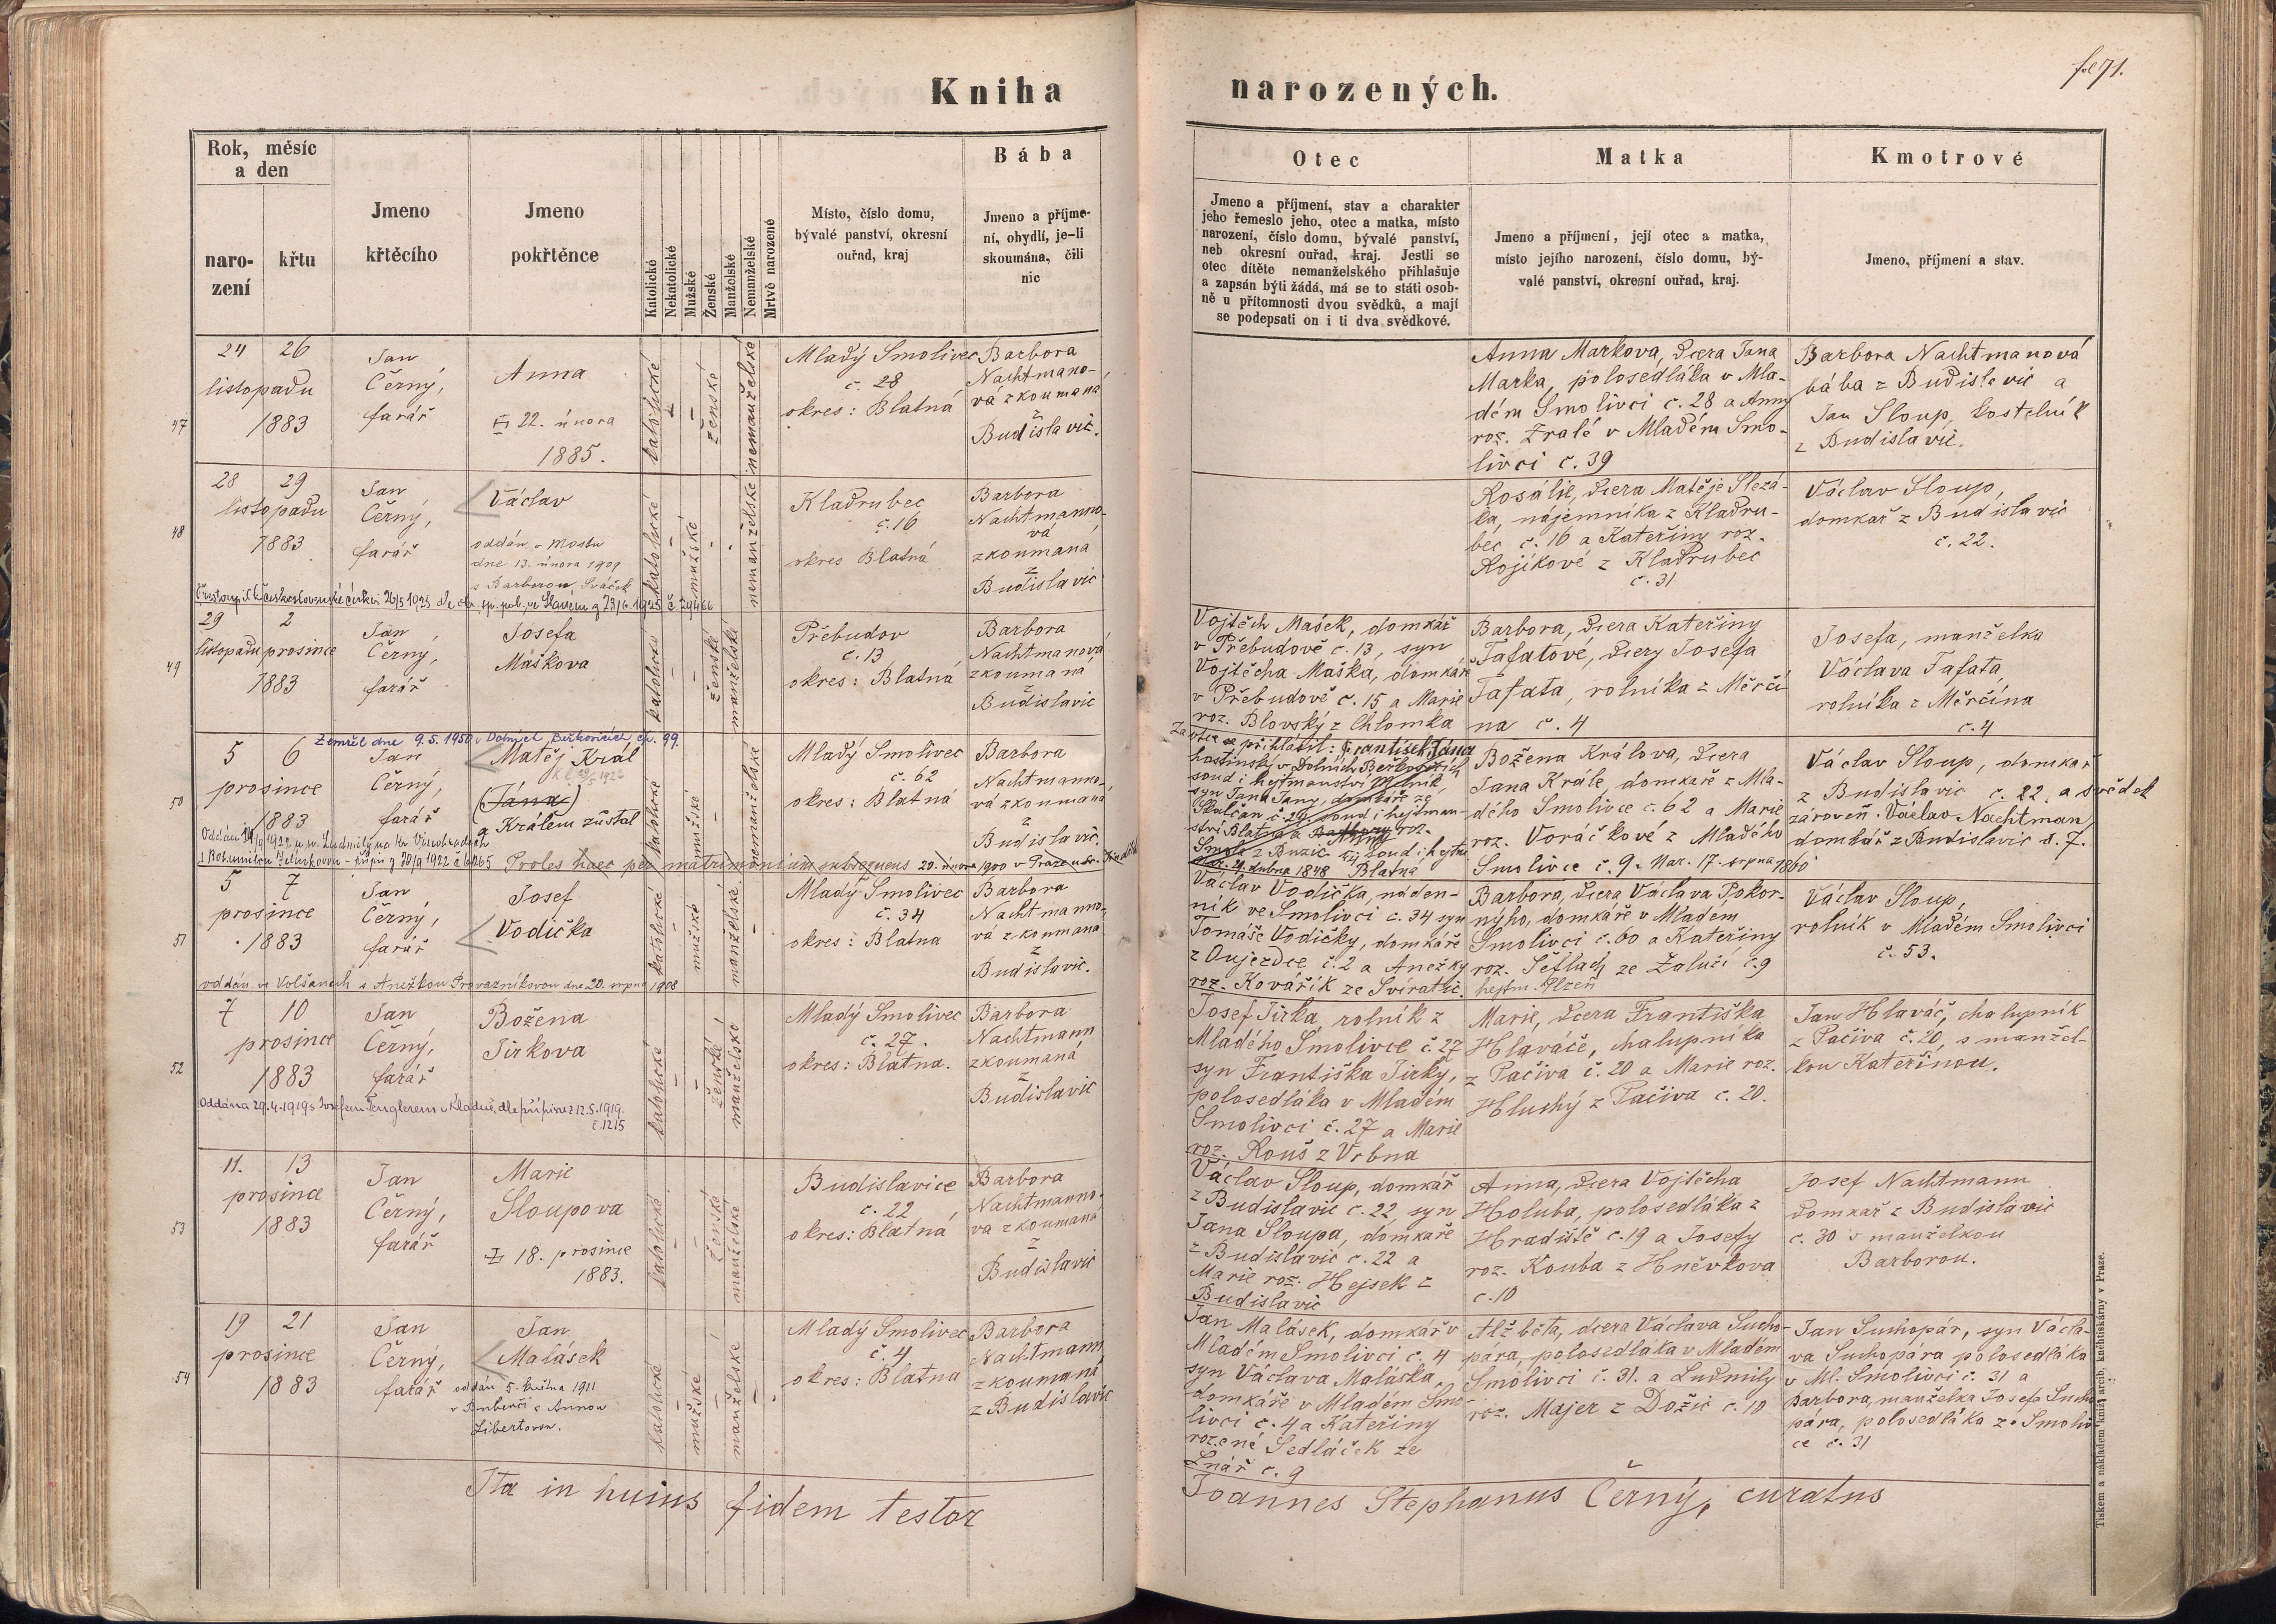 fol 71.
Kniha narozených.
Rok, měsíc
a den
naro-
zení
křtu
Jmeno
křtěcího
Jmeno
pokřtěnce
Katolické
Nekatolické
Mužské
Ženské
Manželské
Nemanželské
Mrtvě narozené
Místo, číslo domu,
bývalé panství, okresní
ouřad, kraj
Bába
Jmeno a příjme-
ní, obydlí, je-li
skoumána, čili
nic
Otec
Jmeno a příjmení, stav a charakter
jeho řemeslo jeho, otec a matka, místo
narození, číslo domu, bývalé panství,
neb okresní ouřad, kraj. Jestli se
otec dítěte nemanželského přihlašuje
a zapsán býti žádá, má se to státi osob-
ně u přítomnosti dvou svědků, a mají
se podepsati on i ti dva svědkové.
Matka
Jmeno a příjmení, její otec a matka,
místo jejího narození, číslo domu, bý-
valé panství, okresní ouřad, kraj.
Kmotrové
Jmeno, příjmení a stav.
47
24 26
listopadu
1883
Jan
Černý,
farář
Anna
22. února
1885.
katolické
ženské
nemanželské
Mladý Smolivec
č. 28
okres: Blatná
Barbora
Nachtmano-
vá zkoumaná
z
Budislavic.
Anna Markova, dcera Jana
Marka, polosedláka v Mla-
dém Smolivci č. 28 a Anny
roz. Zralé v Mladém Smo-
livci č. 39
Barbora Nachtmanová
bába z Budislavic a
Jan Sloup, kostelník
z Budislavic.
48
28 29
listopadu
1883
Jan
Černý,
farář
Václav
oddán v Mostu
dne 13. února 1909
s Barborou Sváček
katolické
mužské
nemanželské
Kladrubec
č. 16
okres Blatná
Barbora
Nachtmanno-
vá
zkoumaná
z
Budislavic
Rosálie, dcera Matěje Slezá-
ka, nájemníka z Kladru-
bec č. 16 a Kateřiny roz.
Rojíkové z Kladrubec
č. 31
Václav Sloup,
domkař z Budislavic
č. 22.
49
29 2
listopadu prosince
1883
Jan
Černý,
farář
Josefa
Máškova
katolické
ženské
manželské
Přebudov
č. 13
okres: Blatná
Barbora
Nachtmanová
zkoumaná
z
Budislavic
Vojtěch Mašek, domkář
v Přebudově č. 13, syn
Vojtěcha Maška, domkáře
v Přebudově č. 15 a Marie
roz. Blovský z Chlomka
Barbora, dcera Kateřiny
Tafatové, dcery Josefa
Tafata, rolníka z Měrčí-
na č. 4
Josefa, manželka
Václava Tafata,
rolníka z Měrčína
č. 4
50
Zemřel dne 9.5.1950 v Dolních Beřkovicích čp. 99.
5 6
prosince
1883
Jan
Černý,
farář
Matěj Král
(Jána)
a Králem zůstal
katolické
mužské
nemanželské
Mladý Smolivec
č. 62
okres: Blatná
Barbora
Nachtmanno-
vá zkoumaná
z
Budislavic.
Proles haec per matrimonium subsequens 20. února 1900 v Praze
Za otce se přihlásil: František Jána
hostinský v Dolních Beřkovicích
soud i hejtmanství Mělník
syn Jana Jany, domkáře ze
Skalčan č. 29, soud i hejtman-
ství Blatná a roz.
z Buzic soud i hejtm.
Nar. 4. dubna 1848 Blatná
Božena Králova, dcera
Jana Krále, domkaře z Mla-
dého Smolivce č. 62 a Marie
roz. Voráčkové z Mladého
Smolivce č. 9. Nar. 17. srpna 1860
Václav Sloup, domkař
z Budislavic č. 22, a svědek
zároveň. Václav Nachtman,
domkář z Budislavic č. 7.
51
5 7
prosince
1883
Jan
Černý,
farář
Josef
Vodička
katolické
mužské
manželské
Mladý Smolivec
č. 34
okres: Blatna
Barbora
Nachtmanno-
vá zkoumaná
z
Budislavic.
oddán ve Volšanech s Anežkou Provazníkovou dne 20. srpna 1908
Václav Vodička, náden-
ník ve Smolivci č. 34 syn
Tomáše Vodičky, domkáře
z Oujezdce č. 2 a Anežky
roz. Kovařík ze Svíratic.
Barbora, dcera Václava Pokor-
nýho, domkáře v Mladém
Smolivci č. 60 a Kateřiny
roz. Šeflady ze Zaluží č. 9
hejtm. Plzeň
Václav Sloup,
rolník v Mladém Smolivci
č. 53.
52
7 10
prosince
1883
Jan
Černý,
farář
Božena
Jirkova
katolické
ženské
manželské
Mladý Smolivec
č. 27.
okres: Blatna.
Barbora
Nachtmann
zkoumaná
z
Budislavic
Oddána 29.4.1919 s Josefem Tenglerem v Kladně, dle přípisu z 12.5.1919.
č. 1215
Josef Jirka rolník z
Mladého Smolivce č. 27
syn Františka Jirky,
polosedláka v Mladém
Smolivci č. 27 a Marie
roz. Rouš z Vrbna
Marie, dcera Františka
Hlaváče, chalupníka
z Pačiva č. 20 a Marie roz.
Hluchý z Pačiva č. 20.
Jan Hlaváč, chalupník
z Pačiva č. 20, s manžel-
kou Kateřinou.
53
11. 13
prosince
1883
Jan
Černý,
farář
Marie
Sloupova
18. prosince
1883.
katolické
ženské
manželské
Budislavice
č. 22
okres: Blatná
Barbora
Nachtmanno-
va zkoumaná
z
Budislavic
Václav Sloup, domkář
z Budislavic č. 22 syn
Jana Sloupa, domkaře
z Budislavic č. 22 a
Marie roz. Hejsek z
Budislavic
Anna, dcera Vojtěcha
Holuba, polosedláka z
Hradiště č. 19 a Josefy
roz. Kouba z Hněvkova
č. 10
Josef Nachtmann
domkař z Budislavic
č. 30 s manželkou
Barborou.
54
19 21
prosince
1883
Jan
Černý,
farář
Jan
Malásek
oddán 5. května 1911
v Bubenči s Annou
Libertovou.
katolické
mužské
manželské
Mladý Smolivec
č. 4
okres: Blatna
Barbora
Nachtmann
zkoumaná
z Budislavic
Jan Malásek, domkář v
Mladém Smolivci č. 4
syn Václava Maláska,
domkáře v Mladém Smo-
livci č. 4 a Kateřiny
rozené Sedláček ze
Lnář č. 9
Alžběta, dcera Václava Sucho-
pára, polosedláka v Mladém
Smolivci č. 31. a Ludmily
roz. Majer z Dožic č. 10
Jan Suchopár, syn Václa-
va Suchopára polosedláka
v Ml. Smolivci č. 31 a
Barbora, manželka Josefa Sucho-
pára, polosedláka z Smoliv-
ce č. 31
Ita in huius fidem testor
Joannes Stephanus Černý, curatus
Tiskem a nákladem knížecí arcib. knihtiskárny v Praze.